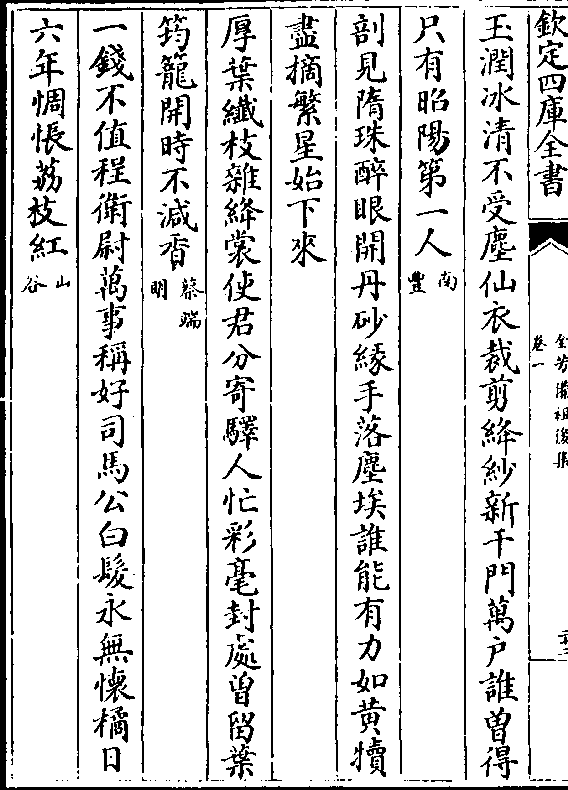 欽定四庫全書
全芳備祖後集
卷一
玉潤冰清不受塵仙衣裁剪絳紗新千門萬户誰曽得
只有昭陽第一人
南豐
剖見隋珠醉眼開丹砂緣手落塵埃誰能有力如黄犢
盡摘繁星始下來
厚葉纖枝雜絳裳使君分寄驛人忙彩毫封處曽留葉
筠籠開時不減香
蔡端明
一錢不值程衛尉萬事稱好司馬公白髪永無懷橘日
六年惆悵荔枝紅
山谷